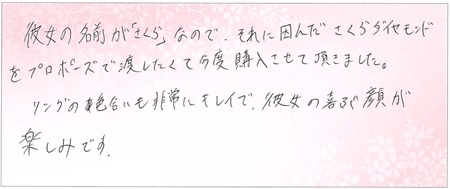 彼女の名前が「さくら」なので、それに因んださくらダイヤモンド
をプロポーズで渡したくて今度購入させて頂きました。
リングの色合いも非常にキレイで、彼女の喜ぶ顔が
楽しみです。